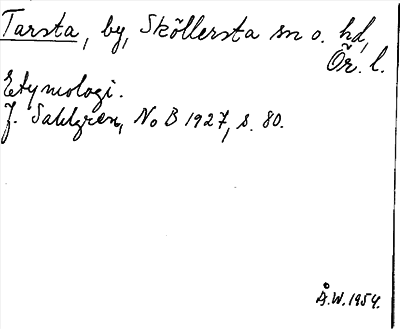 Tarsta, by, Sköllersta sn o. hd,
Ör. l.
Etymologi.
J. Sahlgren, NoB 1927, s. 80.
Å.W. 1954.